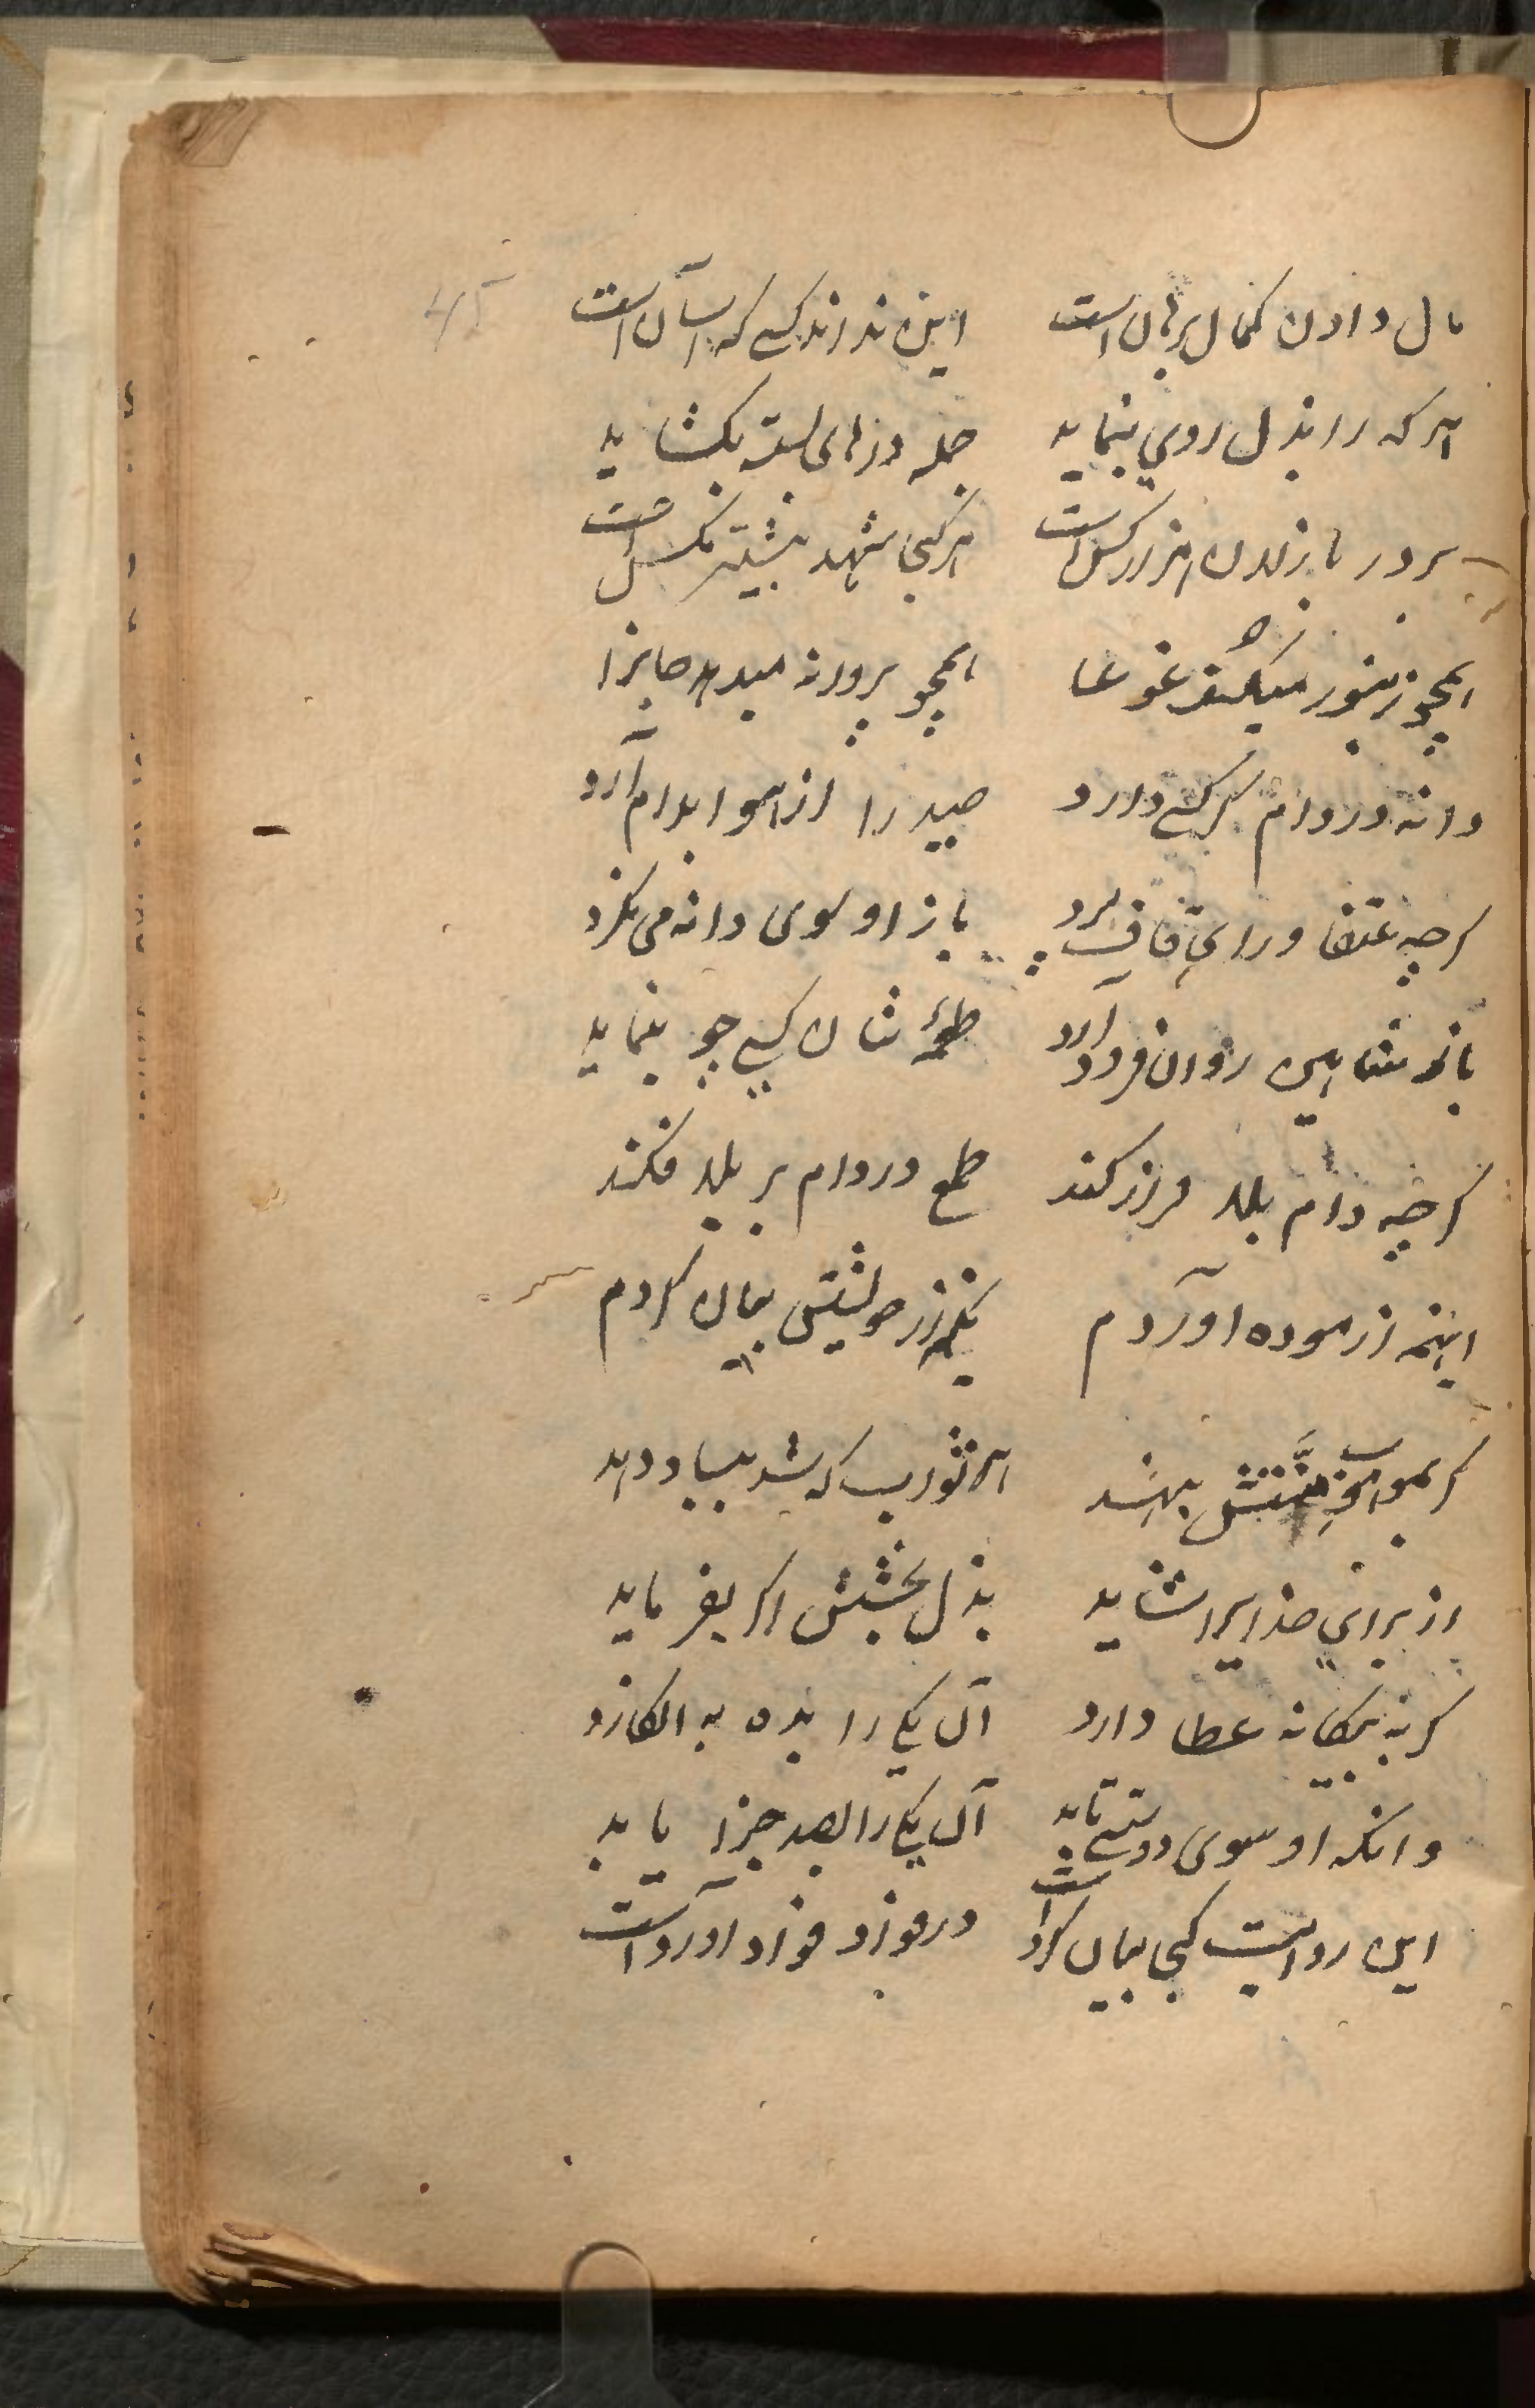 مال دادن کمال برهان است این نداند کسی که آسان است
هر که را بذل روی بنماید جمله درهای بسته بکشاید
بر در باذلان هزار کس است هر کجا شهد بیشتر مکس است
همچو زنبور میکند غوغا همچو پروانه میدهد جانرا
دانه در دام هر کسی دارد صید را از هوا بدام آرد
کرچه عنقا ورای قاف پرد باز او سوی دانه می نکرد
باز شاهین روان فرود آرد طمع شان کسی چو بنماید
کرچه دام بلا فراز کند طمع در دام پر بلا فکند
اینهمه آزموده آوردم یکهزار حولیتی بیان کردم
کر بموا بهند هر ثواب که شد بیابد
از برای خدایرا شاید بذل بخشش اکر بفرماید
کر به بیکانه عطا دارد آن یکی را بده به انکارد
وانکه او سوی دوستی تابد آن یکی را بصد جزا یابد
این روایت کجا بیان کرد است در فواد آورد است